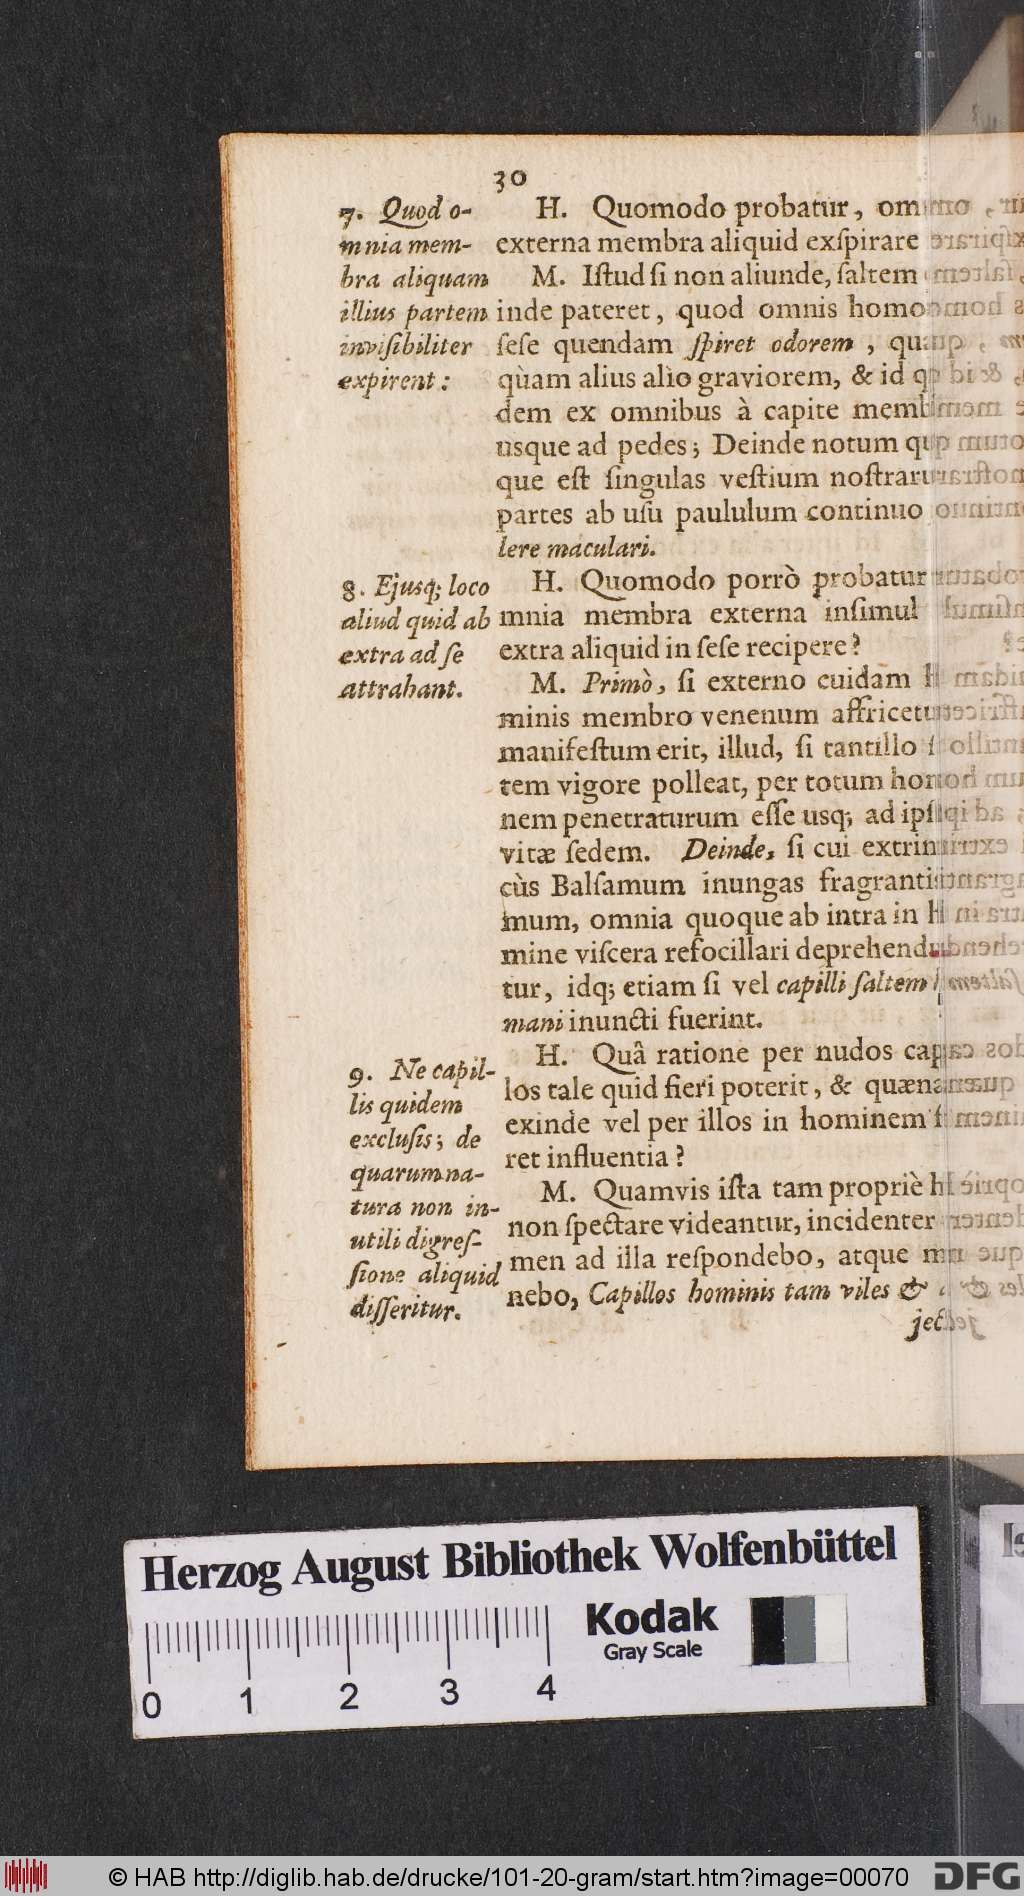 30
7. Quod o-
mnia mem-
bra aliquam
illius partem
inviſibiliter
expirent:
H. Quomodo probatur, om
externa membra aliquid exſpirare
M. Iſtud ſi non aliunde, ſaltem
inde pateret, quod omnis homo
ſeſe quendam ſpiret odorem,
qùam alius alio graviorem, & id
dem ex omnibus à capite memb
usque ad pedes; Deinde notum
que eſt ſingulas veſtium noſtraru
partes ab uſu paululum continuo
lere maculari.
8. Ejusq; loco
aliud quid ab
extra ad ſe
attrahant.
H. Quomodo porrò probatur
mnia membra externa inſimul
extra aliquid in ſeſe recipere?
M. Primò, ſi externo cuidam H
minis membro venenum affricetu
manifeſtum erit, illud, ſi tantillo
tem vigore polleat, per totum ho
nem penetraturum eſſe usq; ad ipſ
vitæ ſedem. Deinde, ſi cui extrin
cùs Balſamum inungas fragranti
mum, omnia quoque ab intra in H
mine viſcera refocillari deprehend
tur, idq; etiam ſi vel capilli ſaltem
mani inuncti fuerint.
9. Ne capil-
lis quidem
excluſis; de
quarum na-
tura non in-
utili digreſ-
ſione aliquid
diſſeritur.
H. Quâ ratione per nudos cap
los tale quid fieri poterit, & quæna
exinde vel per illos in hominem
ret influentia?
M. Quamvis iſta tam propriè h
non ſpectare videantur, incidenter
men ad illa reſpondebo, atque m
nebo, Capillos hominis tam viles &
ject
Herzog August Bibliothek Wolfenbüttel
Kodak
Gray Scale
0 1 2 3 4
© HAB http://diglib.hab.de/drucke/101-20-gram/start.htm?image=00070
DFG